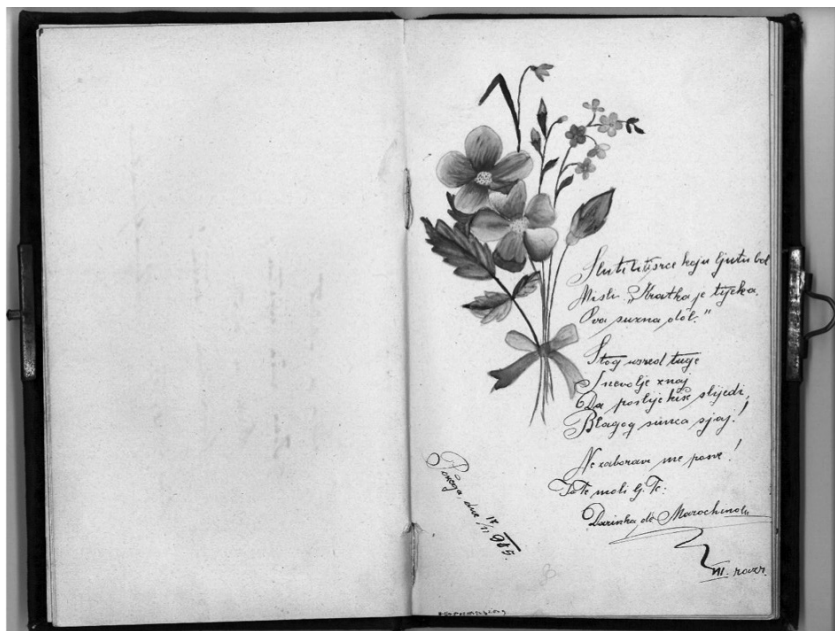 Sluti li ti srce koju ljutu bol
Misli: „Kratka je tijeka
Ova suzna dôl."
Stog usred tuge
I nevolje znaj
Da poslije kiše slijedi,
Blagog sunca sjaj!
Ne zaboravi me
To Te moli lj. Te:
Darinka de
VII. razr.
Požega, dne